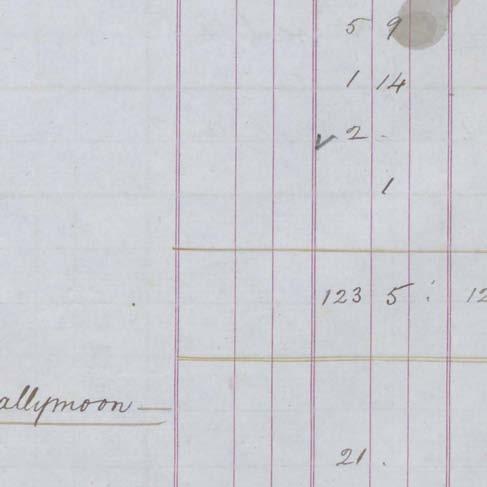 5 9
1 14
✓ 2 .
1
123 5 : 12
allymoon —
21 .